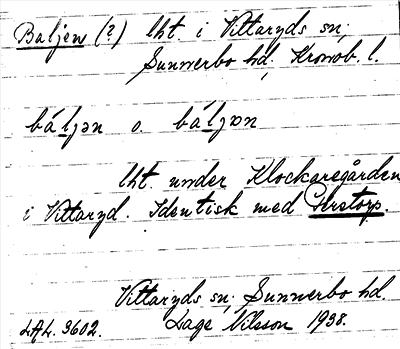 Baljen (?) lht. i Vittaryds sn,
Sunnerbo hd, Kronob. l.
báljən o. báljɒn
lht. under Klockaregården
i Vittaryd. Identisk med Perstorp.
Vittaryds sn, Sunnerbo hd.
LAL. 3602. Lage Nilsson 1938.